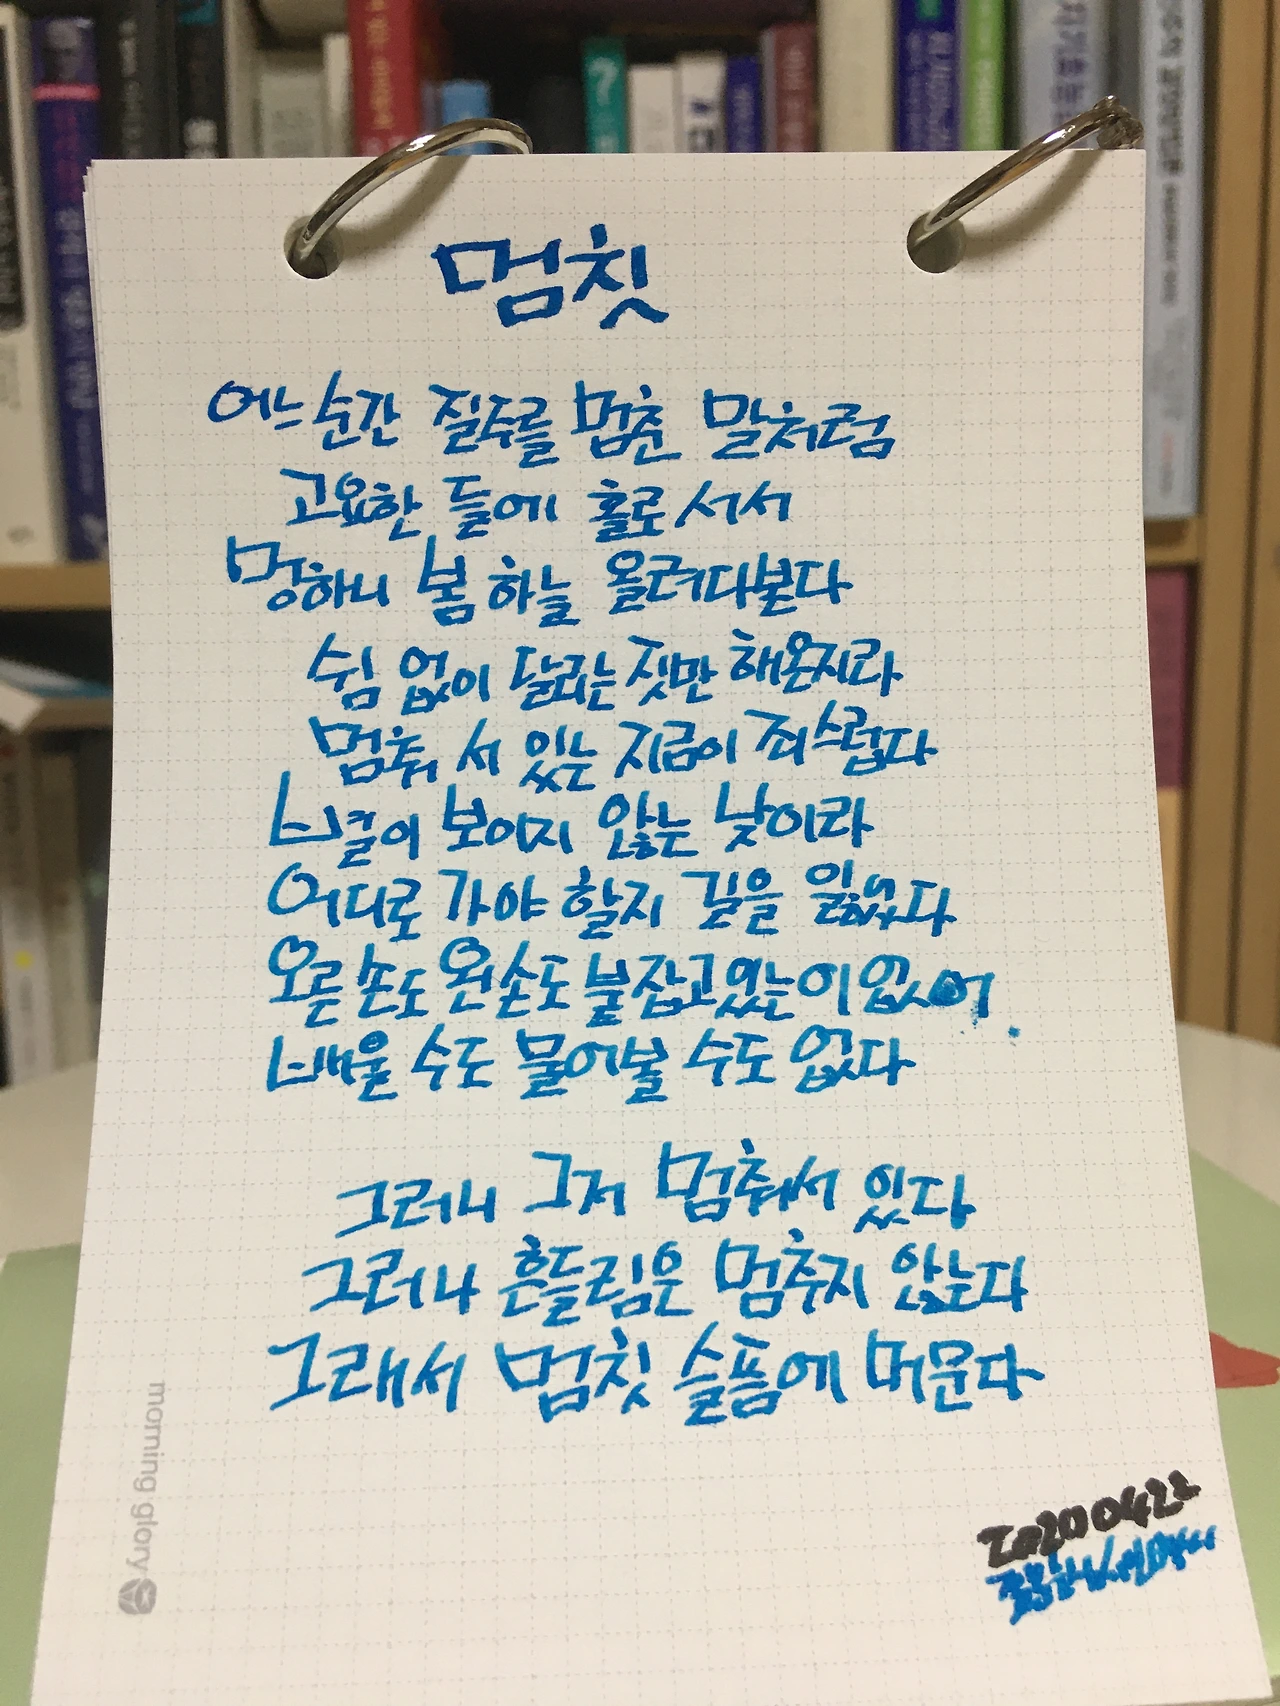 멈칫
어느 순간 질주를 멈춘 말처럼
고요한 들에 홀로 서서
멍하니 봄 하늘 올려다본다
쉼 없이 달리는 짓만 해온지라
멈춰 서 있는 지금이 죄스럽다
별이 보이지 않는 낮이라
어디로 가야 할지 길을 잃었다
오른손도 왼손도 붙잡고있는이없어
배울 수도 물어볼 수도 없다
그러니 그저 멈춰서 있다
그러나 흔들림은 멈추지 않는다
그래서 멈칫 슬픔에 머문다
200422
morning glory